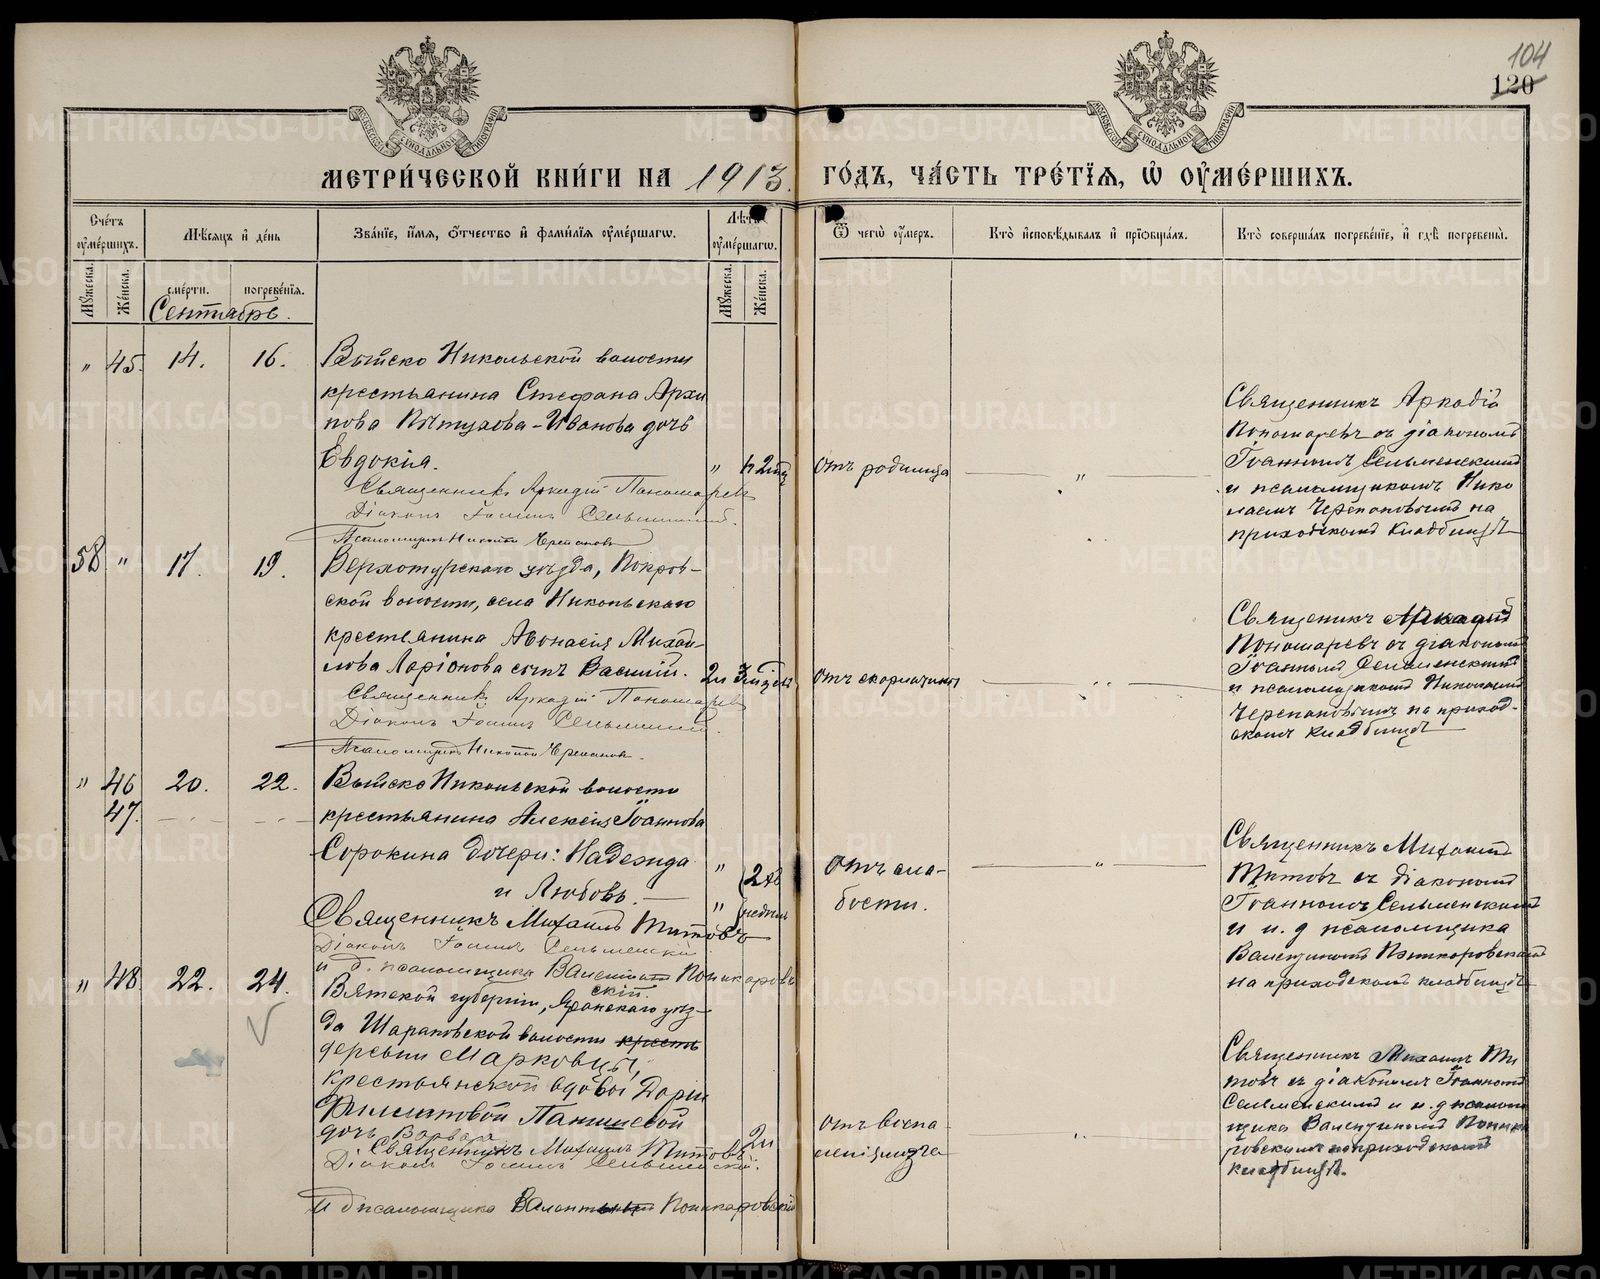 104
120
МЕТРИ́ЧЕСКОЙ КНИ́ГИ НА 1913. ГО́ДЪ, ЧА́СТЬ ТРЕ́ТЇѦ, Ѡ҆ ОУ҆МЕ́РШИХЪ.
Сче́тъ оу҆ме́ршихъ.
Мꙋ́жеска.
Же́нска.
Мѣ́сяцъ и҆ де́нь
сме́рти.
погребе́нїѧ.
Зва́нїе, и҆́мѧ, ѻ҆́тчество и҆ фами́лїѧ оу҆ме́ршагѡ.
Лѣ́та оу҆ме́ршагѡ.
Мꙋ́жеска.
Же́нска.
Ѿ чегѡ̀ оу҆́меръ.
Кто̀ и҆сповѣ́дывалъ и҆ прїѡбща́лъ.
Кто̀ соверша́лъ погребе́нїе, и҆ гдѣ̀ погребены̀.
Сентябрь.
" 45. 14. 16.
Выйско Никольской волости
крестьянина Стефана Архи
пова Пѣтухова-Иванова дочь
Евдокія.
"
отъ родимца
"
Священникъ Аркадій Пономаревъ
Діаконъ Іоаннъ Сельменскій.
Псаломщикъ Николай Черепановъ
Священникъ Аркадій
Пономаревъ съ діакономъ
Іоанномъ Сельменскимъ
и псаломщикомъ Нико
лаемъ Черепановымъ на
приходскомъ кладбищѣ
58 " 17. 19.
Верхотурскаго уѣзда, Покров-
ской волости, села Никольскаго
крестьянина Аѳонасія Михай-
лова Ларіонова сынъ Василій.
отъ скарлатины
"
Священникъ Аркадій Пономаревъ
Діаконъ Іоаннъ Сельменскій.
Псаломщикъ Николай Черепановъ.
Священикъ Аркадій
Пономаревъ съ діакономъ
Іоанномъ Сельменскимъ
и псаломщикомъ Николаемъ
Черепановымъ на приход-
скомъ кладбищѣ
" 46 20. 22.
47.
Выйско Никольской волости
крестьянина Алексія Іоаннова
Сорокина дочери: Надежда
и Любовь.
"
"
недѣли
отъ сла-
бости.
"
Священникъ Михаилъ Титовъ
Діаконъ Іоаннъ Сельменскій
и д. псаломщика Валентинъ Поникаров
скій.
Священникъ Михаилъ
Титовъ съ діакономъ
Іоанномъ Сельменскимъ
и и. д псаломщика
Валентиномъ Поникаровскимъ
на приходскомъ кладбищѣ
" 48. 22. 24.
Вятской губерніи, Яранскаго уѣз-
да Шарановской волости крестъ
деревни Марковцы,
крестьянской вдовы Даріи
Филипповой Папишевой
дочь Варвара
отъ воспа
"
Священникъ Михаилъ Титовъ
Діаконъ Іоаннъ Сельменскій.
и д псаломщика Валентинъ Поникаровскій
Священникъ Михаилъ Ти
товъ съ діакономъ Іоанномъ
Сельменскимъ и и. д псалом
щика Валентиномъ Поника
ровскимъ на приходскомъ
кладбищѣ.
METRIKI.GASO-URAL.RU